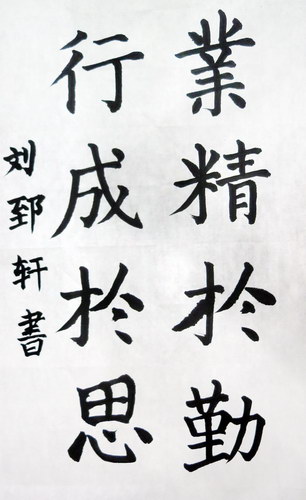 業精於勤
行成於思
刘郅轩書